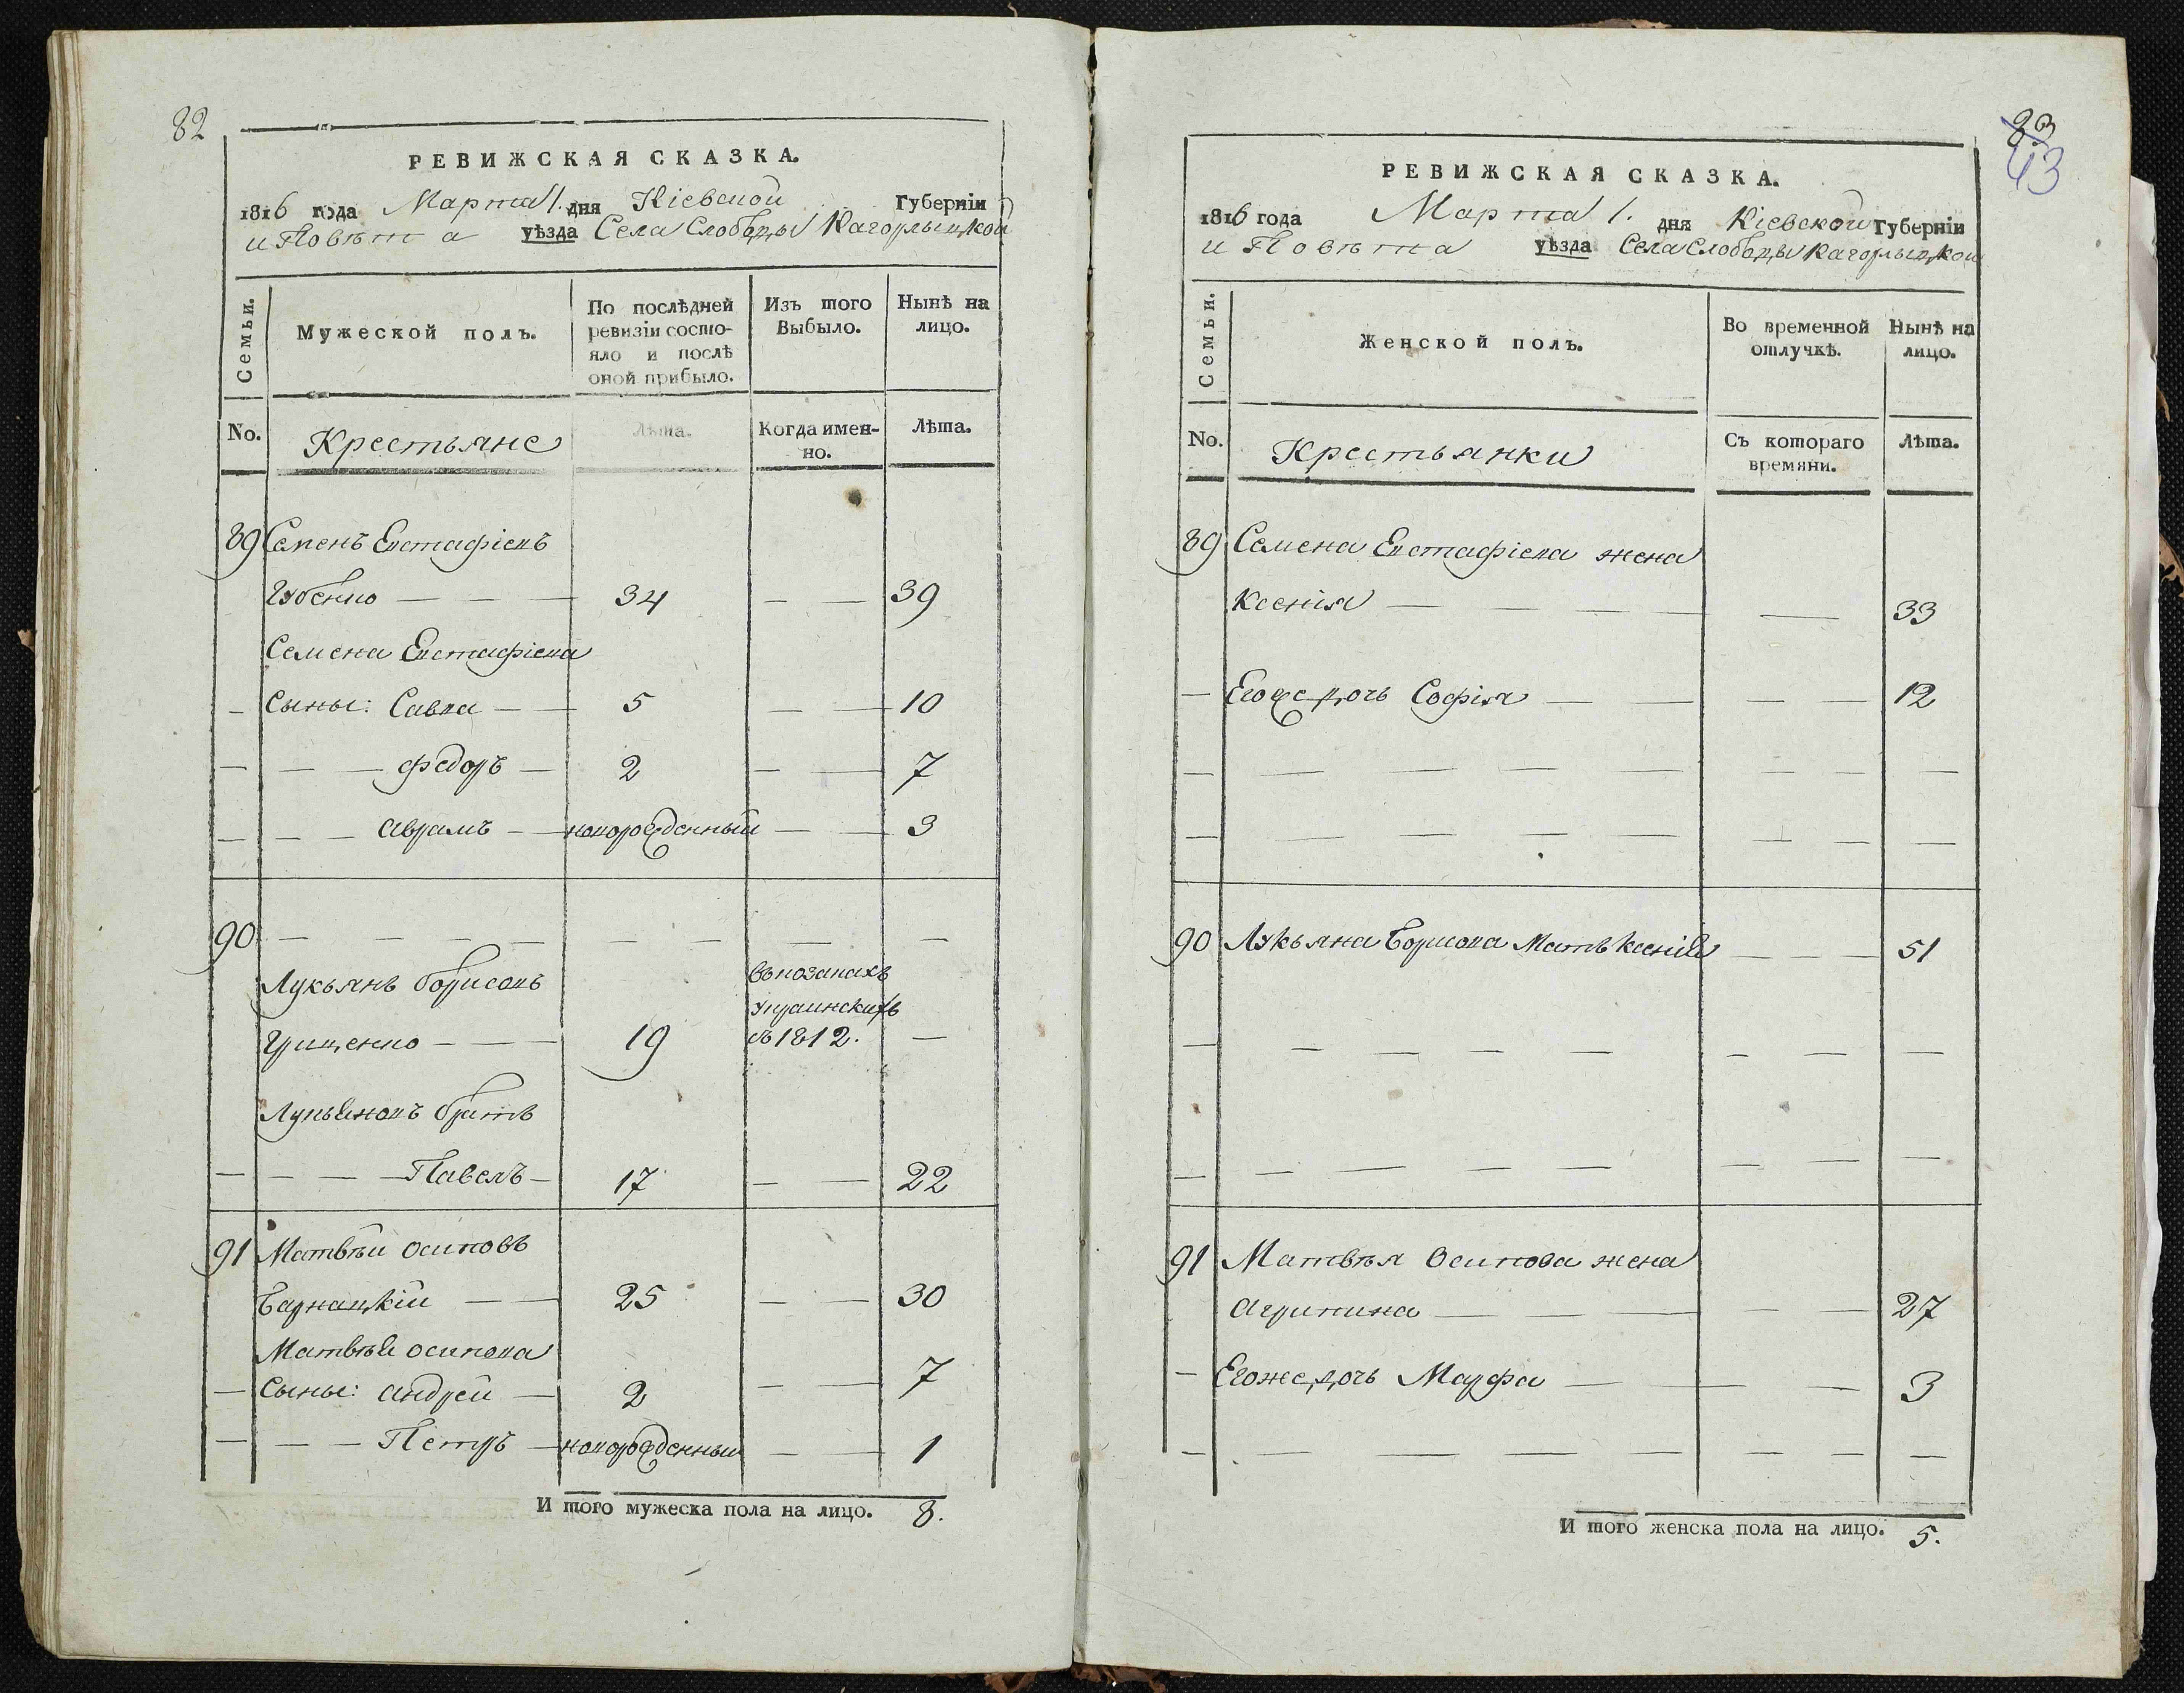 82
РЕВИЖСКАЯ СКАЗКА.
1816 года Марта 1. дня Кіевской Губерніи
и Повѣта уѣзда Села Слободы Кагорлыцкой
Семьи.
Мужеской полъ.
По послѣдней ревизіи состо-
яло и послѣ
оной прибыло.
Изъ того Выбыло.
Нынѣ на лицо.
No.
Крестьяне
Лѣта.
Когда имен-
но.
Лѣта.
89 Семенъ Евстафіевъ
Губенко — — — 34 — — 39
Семена Евстафіева
— Сыны: Савка — — 5 — — 10
— — — Федоръ — 2 — — 7
— — — Аврамъ — новорожденный — — 3
90 — — — — — — — —
Лукьянъ Борисовъ
въ козакахъ
Украинскихъ
Грищенко — — — 19 съ 1812. —
Лукьяновъ братъ
— — — — Павелъ — 17 — — 22
91 Матвѣй Осиповъ
Барнацкій — — 25 — — 30
Матвѣя Осипова
— Сыны: Андрей — 2 — — 7
— — — Петръ — новорожденный — — 1
И того мужеска пола на лицо. 8.
83
43
РЕВИЖСКАЯ СКАЗКА.
1816 года Марта 1. дня Кіевской Губерніи
и Повѣта уѣзда Села Слободы Кагорлыцкой
Семьи.
Женской полъ.
Во временной отлучкѣ.
Нынѣ на лицо.
No.
Крестьянки
Съ котораго времяни.
Лѣта.
89 Семена Евстафіева жена
Ксенія — — — — — 33
— Егоже дочь Софія — — — — 12
— — — — — — — —
— — — — — — — —
90 Лукьяна Борисова Мать Ксенія — — — 51
— — — — — — — —
— — — — — — — —
91 Матвѣя Осипова жена
Агрипина — — — — — 27
— Егоже дочь Марфа — — — — 3
— — — — — — — —
И того женска пола на лицо. 5.